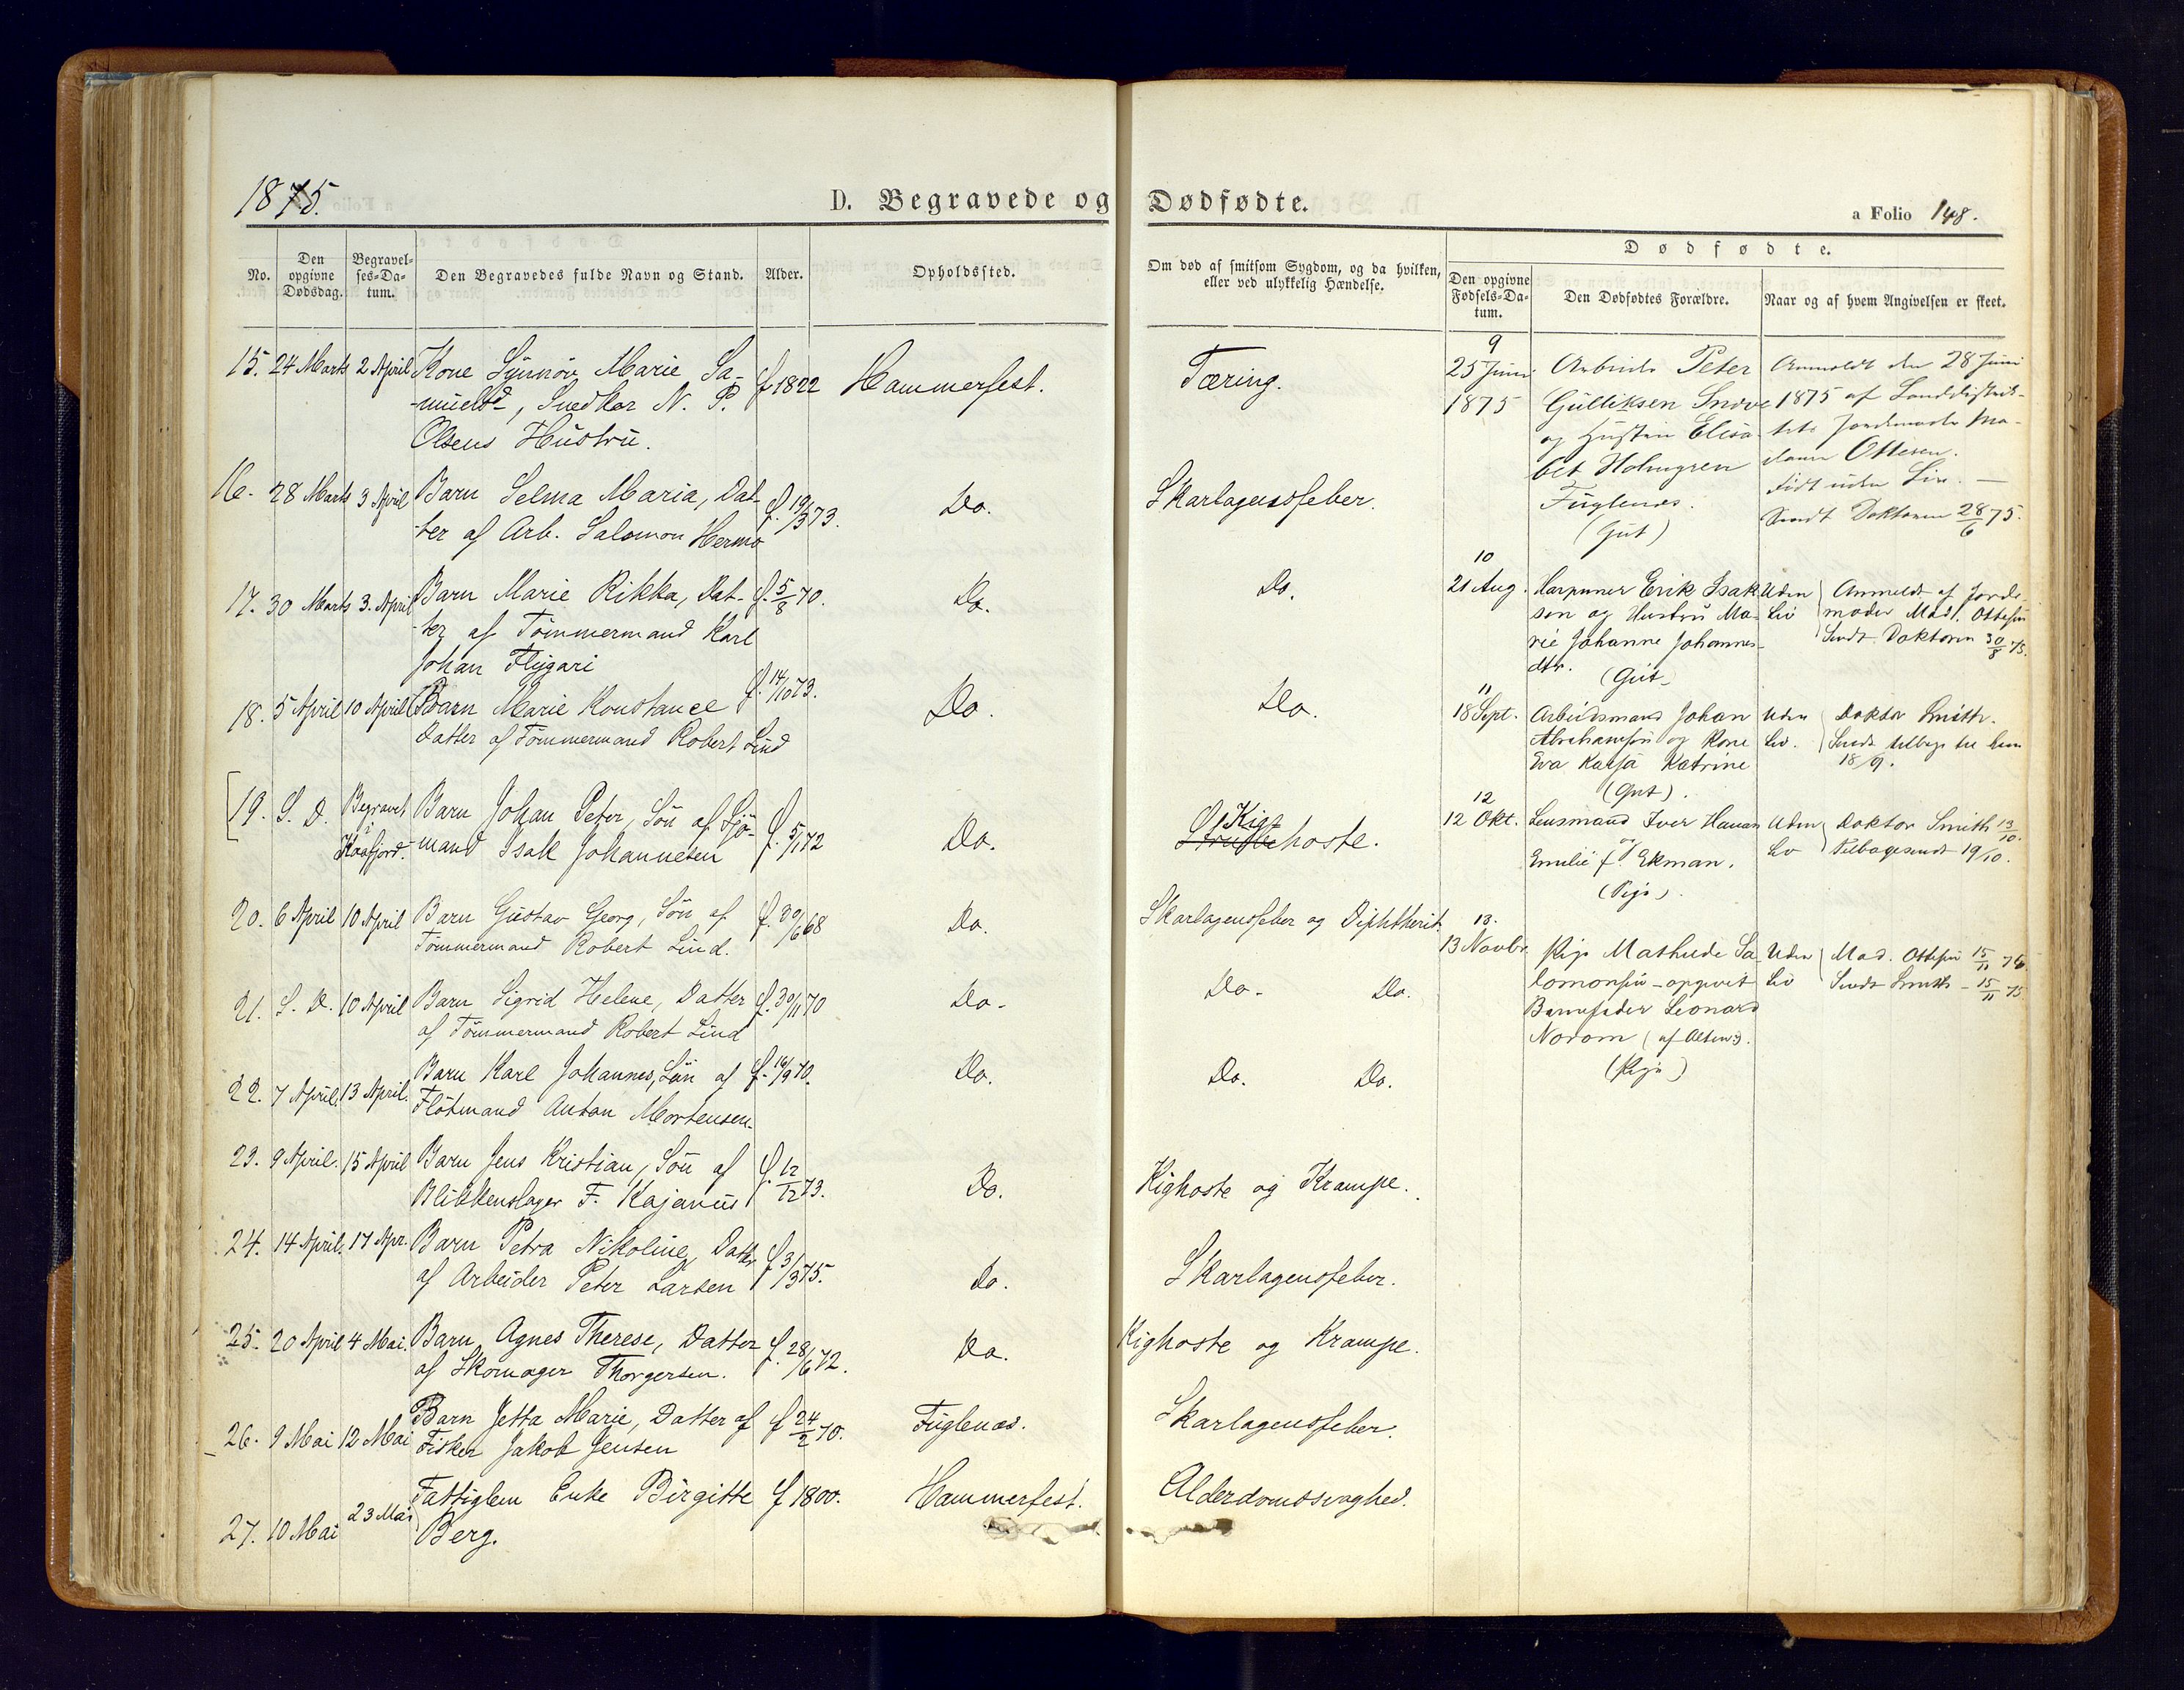 1875.
D. Begravede og Dødfødte.
a Folio 148.
No.
Den opgivne Dødsdag.
Begravel-ses-Da-tum.
Den Begravedes fulde Navn og Stand.
Alder.
Opholdssted.
Om død af smitsom Sygdom, og da hvilken,
eller ved ulykkelig Hændelse.
Dødfødte.
Den opgivne Fødsels-Da-tum.
Den Dødfødtes Forældre.
Naar og af hvem Angivelsen er skeet.
15. 24 Marts 2 April Kone Synnöv Marie Sa- f 1822 Hammerfest. Tæring.
-muelsd, Snedker N. P.
Olsens Hustru.
16. 28 Marts 3 April Barn Selma Maria, Dat- f. 19/3 73. Do. Skarlagensfeber.
ter af Arb. Salomon Hermo
17. 30 Marts 3. April Barn Marie Rikka, Dat- f. 5/8 70. Do. Do.
ter af Tömmermand Karl
Johan Flygari
18. 5 April 10 April Barn Marie Konstance f. 14/10 73. Do. Do.
Datter af Tömmermand Robert Lind
[19. S. D. Begravet i Kaafjord. Barn Johan Peter, Sön af Sjö- f. 5/1 72 Do. Kighoste.
mand Isak Johannesen
20. 6 April 10 April Barn Gustav Georg, Sön af f. 30/6 68 Do. Skarlagensfeber og Diphtherit.
Tömmermand Robert Lind.
21. S. D. 10 April Barn Sigrid Helene, Datter f. 30/11 70 Do. Do. Do.
af Tömmermand Robert Lind
22. 7 April. 13 April. Barn Karl Johannes, Sön af f. 16/9 70. Do. Do. Do.
Flötmand Anton Mortensen.
23. 9 April. 15 April Barn Jens Kristian, Sön af f. 12/12 73. Do. Kighoste og Krampe.
Blikkenslager F. Kajanus
24. 14 April. 17 Apr. Barn Petra Nikoline, Datter f. 3/3 75. Do. Skarlagensfeber.
af Arbeider Peter Larsen
25. 20 April 4 Mai. Barn Agnes Therese, Datter f. 28/6 72. Do. Kighoste og Krampe.
af Skomager Thorgersen.
26. 9 Mai 12 Mai Barn Jetta Marie, Datter af f 24/2 70. Fuglenæs. Skarlagensfeber.
Fisker Jakob Jensen
27. 10 Mai 23 Mai Fattiglem Enke Birgitte f 1800. Hammerfest. Alderdomssvaghed.
Berg.
9
25 Juni Arbeider Peter Anmeldt den 28 Juni
1875 Gulliksen Snove 1875 af Landdistrik-
og Hustru Elisa- tets Jordemoder Ma-
bet Holmgren dame Ottesen.
Fuglenæs. Födt uden Liv. —
(Gut) Sendt Doktoren 28/6 75.
10
21 Aug. Harpuner Erik Isak- Uden Anmeldt af Jorde-
sen og Hustru Ma- Liv moder Mad. Ottesen
rie Johanne Johannes- Sendt Doktoren 30/8 75.
dtr.
(Gut)
11
18 Sept. Arbeidsmand Johan Uden Doktor Smith.
Abrahamsen og Kone Liv. Sendt tilbage til ham
Eva Kaisa Katrine 18/9.
(Gut).
12
12 Okt. Lensmand Iver Hansen Uden Doktor Smith 13/10.
og Liv Tilbagesendt 19/10.
Emilie f. Ekman.
(Pige).
13.
13 Novbr. Pige Mathilde Sa- Uden Mad. Ottesen 15/11 75.
lomonsen - opgivet Liv Sendt Smith - 15/11 75
Barnefader Leonard
Norom (af Alten).
(Pige)